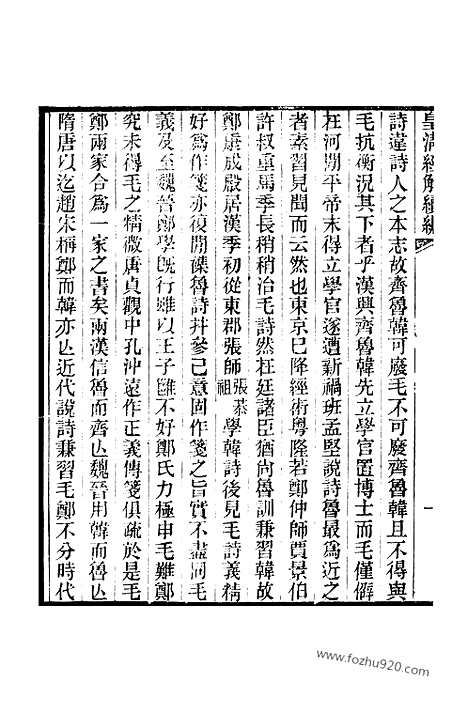 皇清經解續編
一
詩違詩人之本志故齊魯韓可廢毛不可廢齊魯韓且不得與
毛抗衡況其下者乎漢興齊魯韓先立學官置博士而毛僅僻
在河閒平帝末得立學官遂遭新禍班孟堅說詩魯最爲近之
者素習見聞而云然也東京已降經術粵隆若鄭仲師賈景伯
許叔重馬季長稍稍治毛詩然在廷諸臣猶尚魯訓兼習韓故
鄭康成殿居漢季初從東郡張師張恭祖學韓詩後見毛詩義精
好爲作箋亦復閒襍魯詩幷參己意固作箋之旨實不盡同毛
義及至魏晉鄭學旣行雖以王子雝不好鄭氏力極申毛難鄭
究未得毛之精微唐貞觀中孔沖遠作正義傳箋俱疏於是毛
鄭兩家合爲一家之書矣兩漢信魯而齊亾魏晉用韓而魯亾
隋唐以迄趙宋稱鄭而韓亦亾近代說詩兼習毛鄭不分時代
www.fozhu920.com